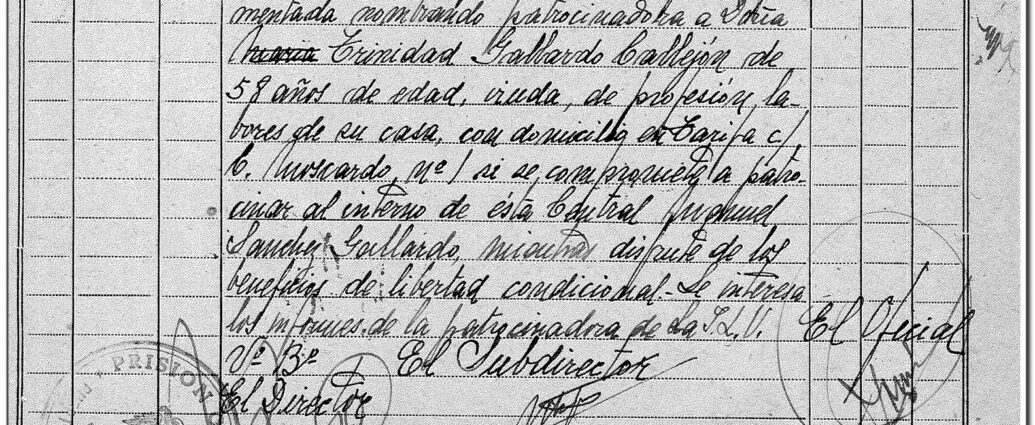 mentada nombrando patrocinadora a Doña
Trinidad Gallardo Callejón de
58 años de edad, viuda, de profesión, la-
bores de su casa, con domicilio en Tarifa c/
C. Moscardo, nº 1 si se compromete a patro-
cinar al interno de ésta Central Manuel
Sanchez Gallardo, mientras disfrute de los
beneficios de libertad condicional.- Se interesa
los informes de la patrocinadora de la J.L.V.
El Oficial
Vº Bº El Subdirector
El Director
PRISION